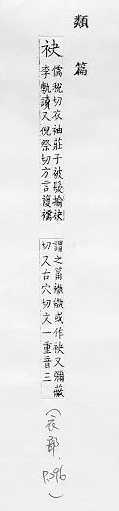 類篇
袂
儒稅切衣袖莊子被髮揄袂
李軌讀又倪祭切方言複襦
謂之筩褹褹或作袂又彌蔽
切又古穴切文一重音三
(衣部, P.296)